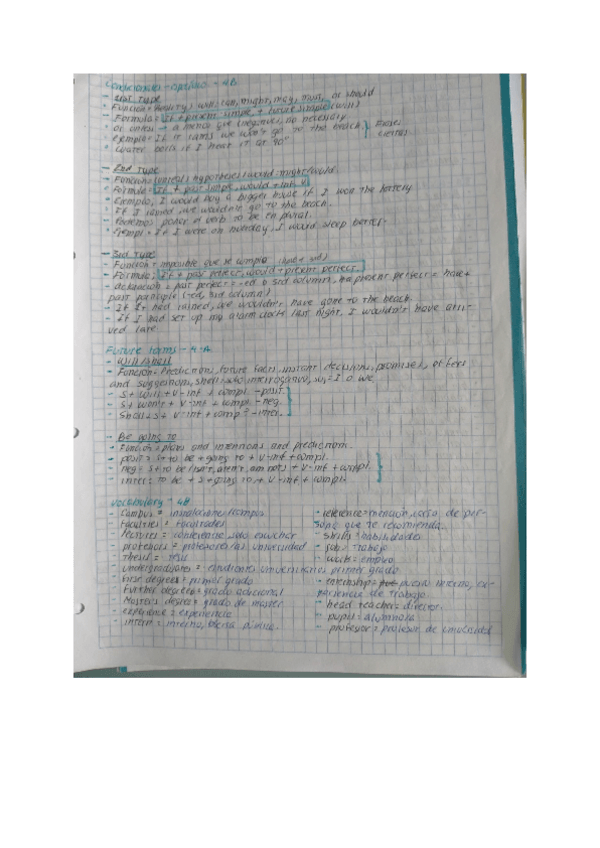 - 1st Type
- Función = will, can, might, may, must, or should
- Formula = If + present simple, + future simple (will)
- ejemplo = If it rains we won't go to the beach. } Frases
- Water boils if I heat it at 90°
- 2nd Type
- Formula = If + past simple, would + inf. V
- Ejemplo, I would buy a bigger house if I won the lottery
If I rained we wouldn't go to the beach.
- Podemos poner el verb to be en plural.
- Ejempl = If I were on holiday, I would sleep better.
- 3rd Type
- Función = imposible que se cumpla
- Formula: If + past perfect, would + present perfect.
- aclaración = past perfect = -ed o 3rd column, the present perfect = have +
past participle (-ed, 3rd column)
- If it had rained, we wouldn't have gone to the beach.
- If I had set up my alarm clock last night, I wouldn't have arri-
ved late.
Future forms - 4A
- Will/shall
- Función = Predictions, future facts, instant decisions, promises, offers
and suggestions, shall = interrogative, I o we
- S + will + V-inf + compl. - posit.
- S + won't + V-inf + compl. - neg.
- Shall + S + V-inf + comp? - inter.
- Be going to
- Función = plans and intentions and predictions.
- posit = S + to be + going to + V-inf + compl.
- neg = S + to be (isn't, aren't, am not) + V-inf + compl.
- inter = to be + S + going to + V-inf + compl.
Vocabulary - 4B
- Campus = instalaciones/campus
- Faculties = facultades
- lectures = conferencia, solo escuchar
- professors = profesores/as universidad
- Thesis = tesis
- undergraduates = estudiantes universitarios, primer grado
- First degrees = primer grado
- Further degrees = grado adicional
- Master's degree = grado de master
- experience = experiencia
- intern = interno,
- reference = mención, de per-
sona que te recomienda.
- skills = habilidades
- job = trabajo
- work = empleo
- internship = puesto interno, ex-
periencia de trabajo.
- head teacher = director.
- pupil = alumno/a
- professor = profesor de universidad